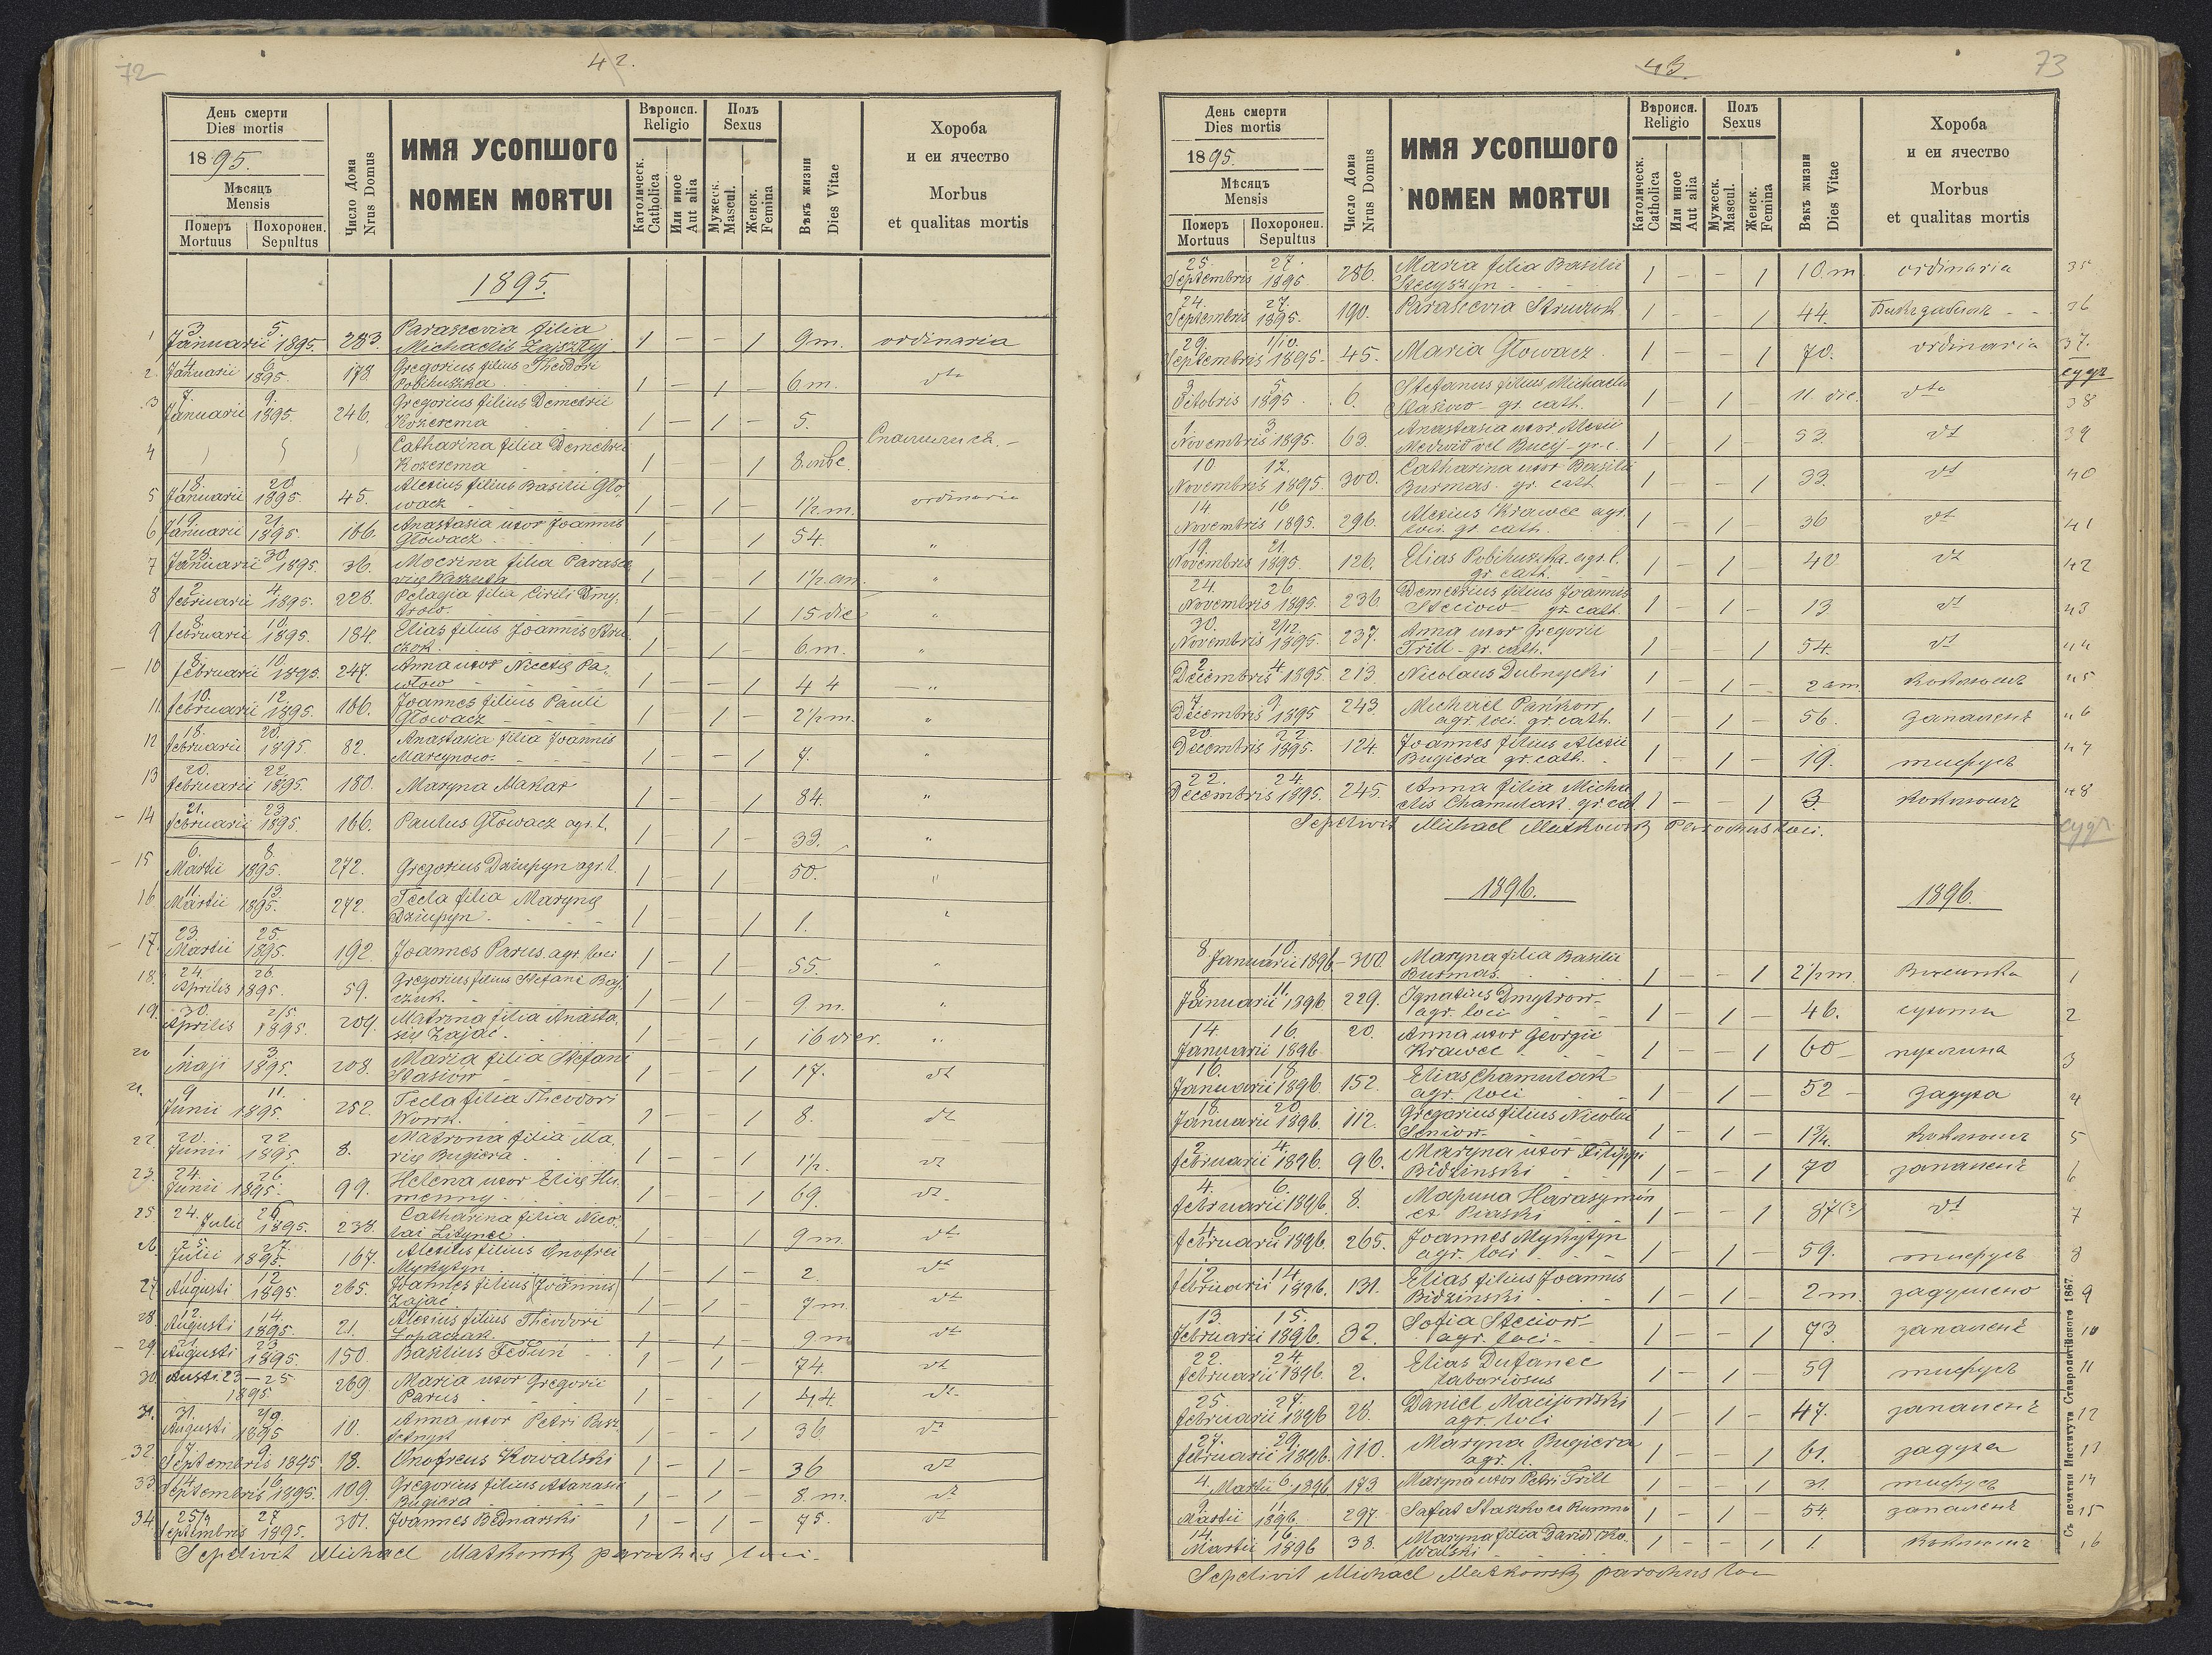 72
42.
День смерти
Dies mortis
1895.
Мѣсяцъ
Mensis
Померъ Похоронен.
Mortuus Sepultus
Число Дома
Nrus Domus
ИМЯ УСОПШОГО
NOMEN MORTUI
Вѣроисп.
Religio
Католическ.
Catholica
Или иное
Aut alia
Полъ
Sexus
Мужеск.
Mascul.
Женск.
Femina
Вѣкъ жизни
Dies Vitae
Хороба
и еи ячество
Morbus
et qualitas mortis
1895.
1 3 Januarii 5. 1895. 283. Parascevia filia Michaelis 1 - - 1 9 m. ordinaria
2. 4 Januarii 6 1895. 178. Gregorius filius Theodori Pobihuszka 1 - 1 - 6 m. dto
3 7. Januarii 9. 1895. 246. Gregorius filius Demetrii Kozerema 1 - 1 - 5.
4 Catharina filia Demetrii Kozerema 1 - - 1 8
5 18. Januarii 20 1895. 45. Alexius filius Basilii Głowacz 1 - 1 - 1½ m. ordinaria
6 19. Januarii 21. 1895. 166. Anastasia uxor Joannis Głowacz 1 - - 1 54. "
7 28. Januarii 30. 1895. 36. Mocrina filia Parascevię 1 - - 1 1½ an. "
8 2 februarii 4. 1895. 228. Pelagia filia Cirili Dmytrow. 1 - - 1 15 die "
9 8. februarii 10. 1895. 184. Elias filius Joannis Struczok 1 - 1 - 6. m. "
10 8. februarii 10 1895. 247. Anna uxor Nicetię Pawłow 1 - - 1 44 "
11. 10. februarii 12. 1895. 166. Joannes filius Pauli Głowacz 1 - 1 - 2½ m. "
12 18. februarii 20. 1895. 82. Anastasia filia Joannis Marcynow. 1 - - 1 7. "
13 20. februarii 22. 1895. 180. Maryna Makar 1 - - 1 84. "
14 21. februarii 23 1895. 166. Paulus Głowacz agr. l. 1 - 1 - 33. "
15 6. Martii 8. 1895. 272. Gregorius Dziupyn agr. l. 1 - 1 - 50. "
16 11. Martii 13 1895. 272. Tecla filia Marynę Dziupyn 1 - - 1 1. "
17. 23. Martii 25. 1895. 192. Joannes Parus agr. loci 1 - 1 - 55. "
18. 24. Aprilis 26. 1895. 59. Gregorius filius Stefani 1 - 1 - 9 m. "
19. 30. Aprilis 2/5 1895. 209. Matrona filia Anastasię Zajac. 1 - - 1 16 dier. "
20 1. Maji 3 1895. 208. Maria filia Stefani Stasiow 1 - - 1 17. dt
21. 9 Junii 11. 1895. 252. Tecla filia Theodori Wowk. 1 - - 1 8. dt
22 20. Junii 22 1895. 8. Matrona filia Marię Bugiera 1 - - 1 1½. dt
23. 24. Junii 26 1895. 99. Helena uxor Elię Humenny 1 - - 1 69. dt.
25 24. Julii 26 1895. 238. Catharina filia Nicolai 1 - - 1 9 m. dt
26. 25. Julii 27 1895. 167. Alexius filius Onofrei Mykytyn 1 - 1 - 2. dt
27 10 Augusti 12 1895. 265. Joannes filius (Joannis) Zajac. 1 - 1 - 7 m. dt
28. 12. Augusti 14. 1895. 21. Alexius filius Theodori Łopaczak 1 - 1 - 9 m dt
29. 21. Augusti 23 1895. 150. Basilius Feduń 1 - 1 - 74. dt
30. 23 - 25 1895. 269. Maria uxor Gregorii Parus 1 - - 1 44. dt.
31. 31. Augusti 2/9. 1895 10. Anna uxor Petri 1 - - 1 36. dt
32. 7. Septembris 9. 1895. 18. Onofreus Kowalski 1 - 1 - 36 dt
33. 14. Septembris 16 1895. 109. Gregorius filius Atanasii Bugiera 1 - 1 - 8. m. dt
34. 25/9 Septembris 27 1895. 301. Joannes Bednarski 1 - 1 - 75. dt
Sepelivit Michael Matkowsky parochus loci.
43.
73
День смерти
Dies mortis
1895.
Мѣсяцъ
Mensis
Померъ Похоронен.
Mortuus Sepultus
Число Дома
Nrus Domus
ИМЯ УСОПШОГО
NOMEN MORTUI
Вѣроисп.
Religio
Католическ.
Catholica
Или иное
Aut alia
Полъ
Sexus
Мужеск.
Mascul.
Женск.
Femina
Вѣкъ жизни
Dies Vitae
Хороба
и еи ячество
Morbus
et qualitas mortis
25. Septembris 27. 1895 286. Maria filia Basilii Stecyszyn 1 - - 1 10. m. ordinaria 35
24. Septembris 27. 1895. 190. Parascevia Struczok 1 - - 1 44. 36
29. Septembris 1/10. 1895. 45. Maria Głowacz 1 - - 1 70. ordinaria 37.
3 Octobris 5. 1895. 6. Stefanus filius Michaelis Stasiow gr. cath. 1 - 1 - 11. die. dto 38
1. Novembris 3 1895. 63. Anastasia uxor Alexii Medwid vel Bucij gr. c. 1 - 1 53. dt 39
10 Novembris 12. 1895. 300. Catharina uxor Basilii Burmas gr. cath. 1 - - 1 33. dt 40
14 Novembris 16 1895. 296. Alexius Krawec agr. loci gr. cath. 1 - 1 - 36 dt 41
19. Novembris 21. 1895. 126. Elias Pobihuszka agr. l. gr. cath. 1 - 1 - 40. dt 42
24. Novembris 26. 1895. 236. Demetrius filius Joannis Steciow gr. cath. 1 - 1 - 13 dt 43
30. Novembris 2/12. 1895. 237. Anna uxor Gregorii Trill gr. cath. 1 - - 1 54. dt 44
2 Decembris 4. 1895. 213. Nicolaus Dubnycki 1 - 1 - 2 am коклюшъ 45
7 Decembris 9. 1895 243 Michael Pańkow agr. loci gr. cath. 1 - 1 - 56. запаленє 46
20 Decembris 22 1895. 124. Joannes filius Alexii Bugiera gr. cath. 1 - 1 - 19. тифусъ 47
22. Decembris 24. 1895. 245. Anna filia Michaelis Chamulak gr. cat. 1 - - 1 3. коклюшъ 48
Sepelivit Michael Matkowsky Parochus loci.
1896. 1896.
8. Januarii 10. 1896 300. Maryna filia Basilii Burmas 1 - - 1 2½ m. 1
8 Januarii 11. 1896 229. Ignatius Dmytrow agr. loci 1 - 1 - 46. сухоты 2
14. Januarii 16. 1896. 20. Anna uxor Georgii Krawec 1 - - 1 60 пухлина 3
16. Januarii 18. 1896. 152. Elias Chamulak agr. loci 1 - 1 - 52 задуха 4
18. Januarii 20. 1896. 112. Gregorius filius Nicolai Seniow 1 - 1 - 1¾. коклюшъ 5
2 februarii 4. 1896. 96. Maryna uxor Filippi Bidzinski 1 - - 1 70 запаленє 6
4. februarii 6. 1896. 8. Harasymin 1 - - 1 87(?) dt 7
4. februarii 6 1896. 265. Joannes Mykytyn agr. loci 1 - 1 - 59. тифусъ 8
12. februarii 14. 1896. 131. Elias filius Joannis Bidzinski 1 - 1 - 2 m. задушено 9
13. februarii 15. 1896. 32. Sofia Steciow agr. loci 1 - - 1 73. запаленє 10
22. februarii 24. 1896. 2. Elias Dufanec laboriosus 1 - 1 - 59 тифусъ 11
25. februarii 27. 1896 28. Daniel Macijowski agr. loci 1 - 1 - 47. запаленє 12
27. februarii 29. 1896. 110. Maryna Bugiera agr. l. 1 - - 1 61. задуха 13
4. Martii 6. 1896 173 Maryna uxor Petri Trill 1 - - 1 31. тифусъ 14
9 Martii 11. 1896. 297. Safat Staszko 1 - 1 - 54. запаленє 15
14. Martii 16. 1896 38. Maryna filia Davidi Kowalski 1 - - 1 1. коклюшъ 16
Sepelivit Michael Matkowsky parochus loci
Съ печатни Института Ставропигійского 1867.